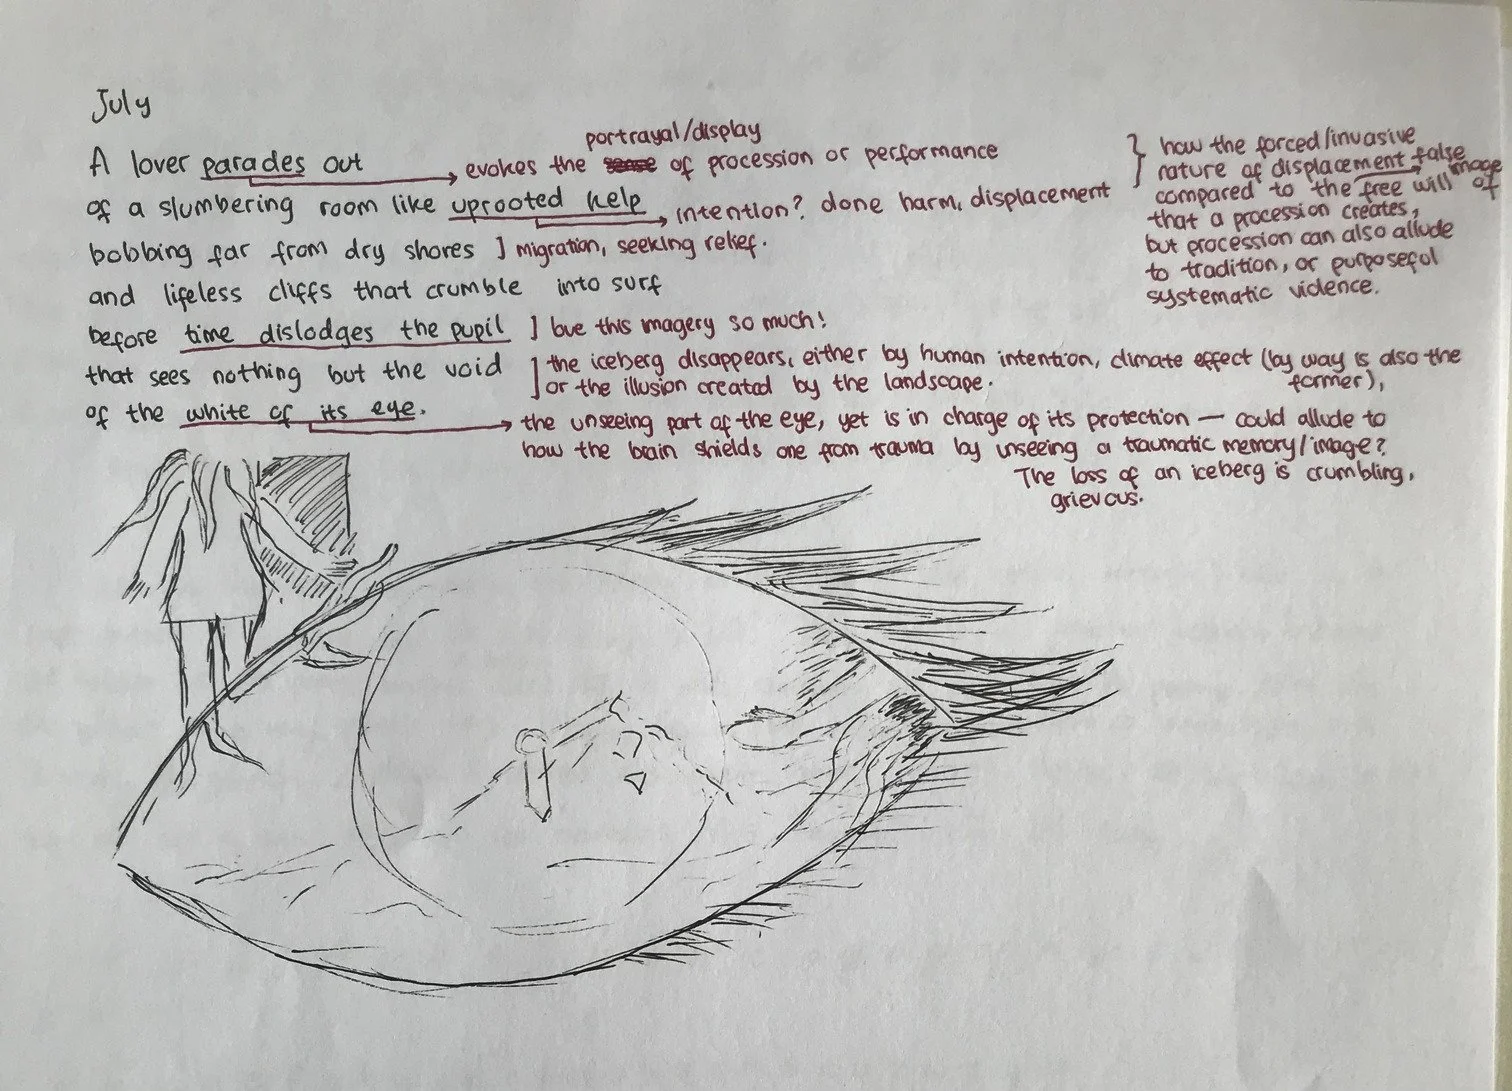 July
portrayal/display
A lover parades out
evokes the sense of procession or performance
of a slumbering room like uprooted kelp
intention? done harm, displacement
bobbing far from dry shores
] migration, seeking relief.
and lifeless cliffs that crumble into surf
before time dislodges the pupil
] love this imagery so much!
that sees nothing but the void
the iceberg disappears, either by human intention, climate effect (by way is also the
former),
or the illusion created by the landscape.
of the white of its eye.
the unseeing part of the eye, yet is in charge of its protection — could allude to
how the brain shields one from trauma by unseeing a traumatic memory/image?
The loss of an iceberg is crumbling,
grievous.
} how the forced/invasive
nature of displacement false
image of
compared to the free will
that a procession creates,
but procession can also allude
to tradition, or purposeful
systematic violence.